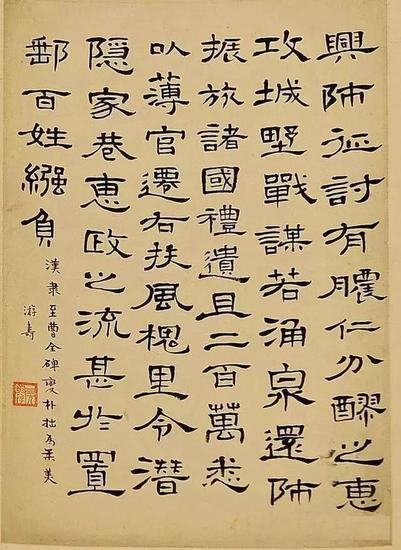 興師征討有膿仁分醪之惠
攻城墅戰謀若涌泉還師
振旅諸國禮遺且二百萬悉
以薄官遷右扶風槐里令潛
隱家巷惠政之流甚於置
郵百姓繈負
漢隸至曹全碑變朴拙為柔美
游壽